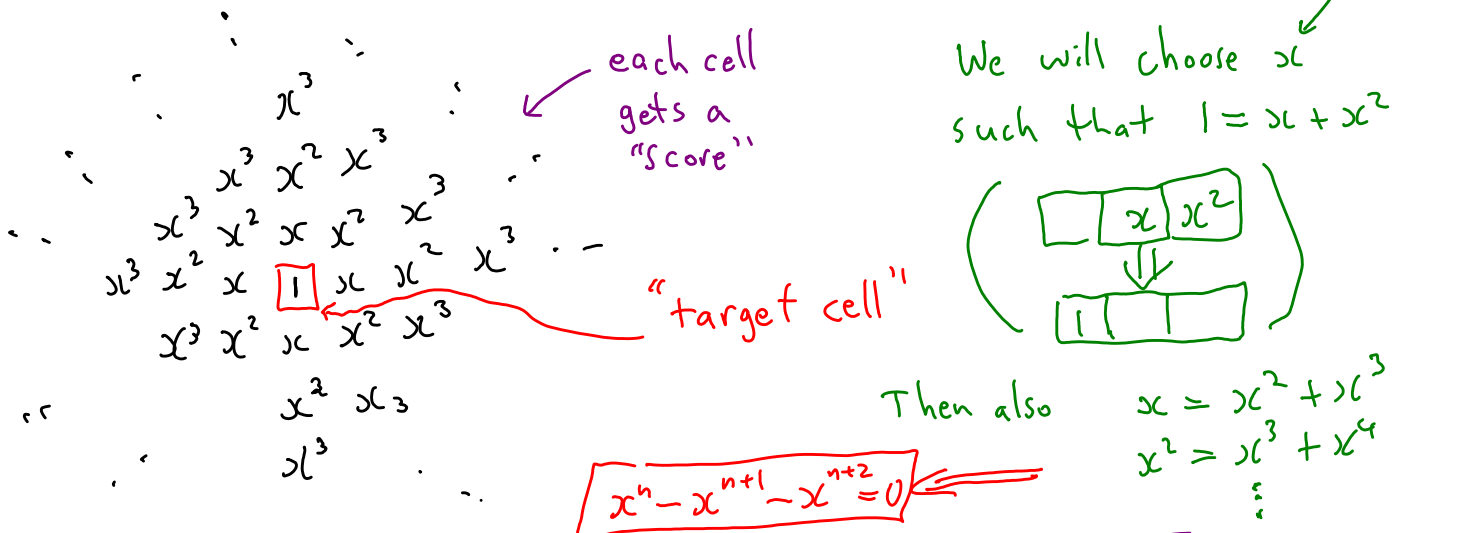 x³
x³ x² x³
x³ x² x x² x³
x³ x² x 1 x x² x³
x³ x² x x² x³
x² x₃
x³
each cell
gets a
"score"
"target cell"
We will choose x
such that 1 = x + x²
x x²
1
Then also x = x² + x³
x² = x³ + x⁴
xⁿ - xⁿ⁺¹ - xⁿ⁺² = 0